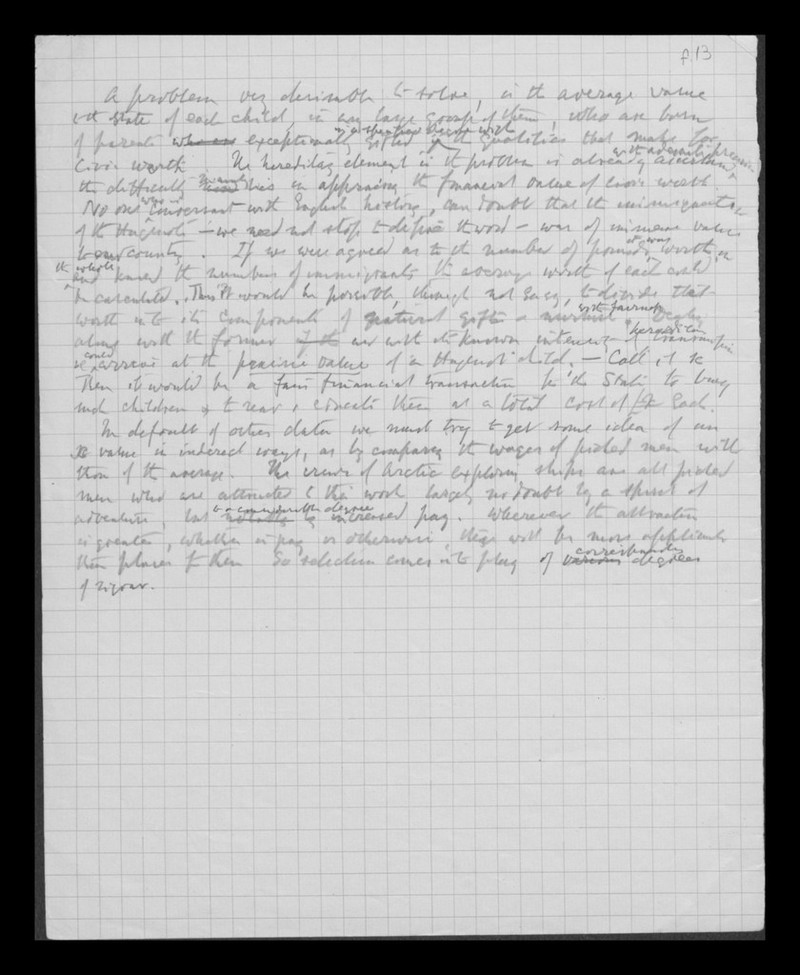 f.13
A problem very desirable to solve, is the average value
to the State of each child, in any large group of them, who are born
of parents who are exceptionally gifted with the qualities that make for
Civic worth. The hereditary element in the problem is already ascertained with adequate precision
the difficulty mainly lies in appraising the financial value of civic worth.
No one who is conversant with English history, can doubt that the immigration
of the Huguenots – we need not stop to define the word – was of immense value
to our country. If we were agreed as to the number of pounds it was worth on
the whole and knew the number of immigrants the average worth of each could
be calculated. Then it would be possible, though not easy, to divide that
worth into its components of natural gifts &
along with the former intensity of hereditary transmission
we could arrive at the prairie value of a Huguenot child, – Call it £
Then it would be a fair financial transaction for the State to buy
such children & to rear & educate them at a total cost of £ each.
In default of other data we must try to get some idea of
value in indirect ways, as by comparing the wages of picked men with
those of the average. The crews of Arctic exploring ships are all picked
men who are attracted to their work largely no doubt by a spirit of
adventure, but to a considerable degree by increased pay. Wherever the attraction
is greater, whether in pay or otherwise, there will be more applicants
than places for them. So selection comes into play of various corresponding degrees
of rigour.